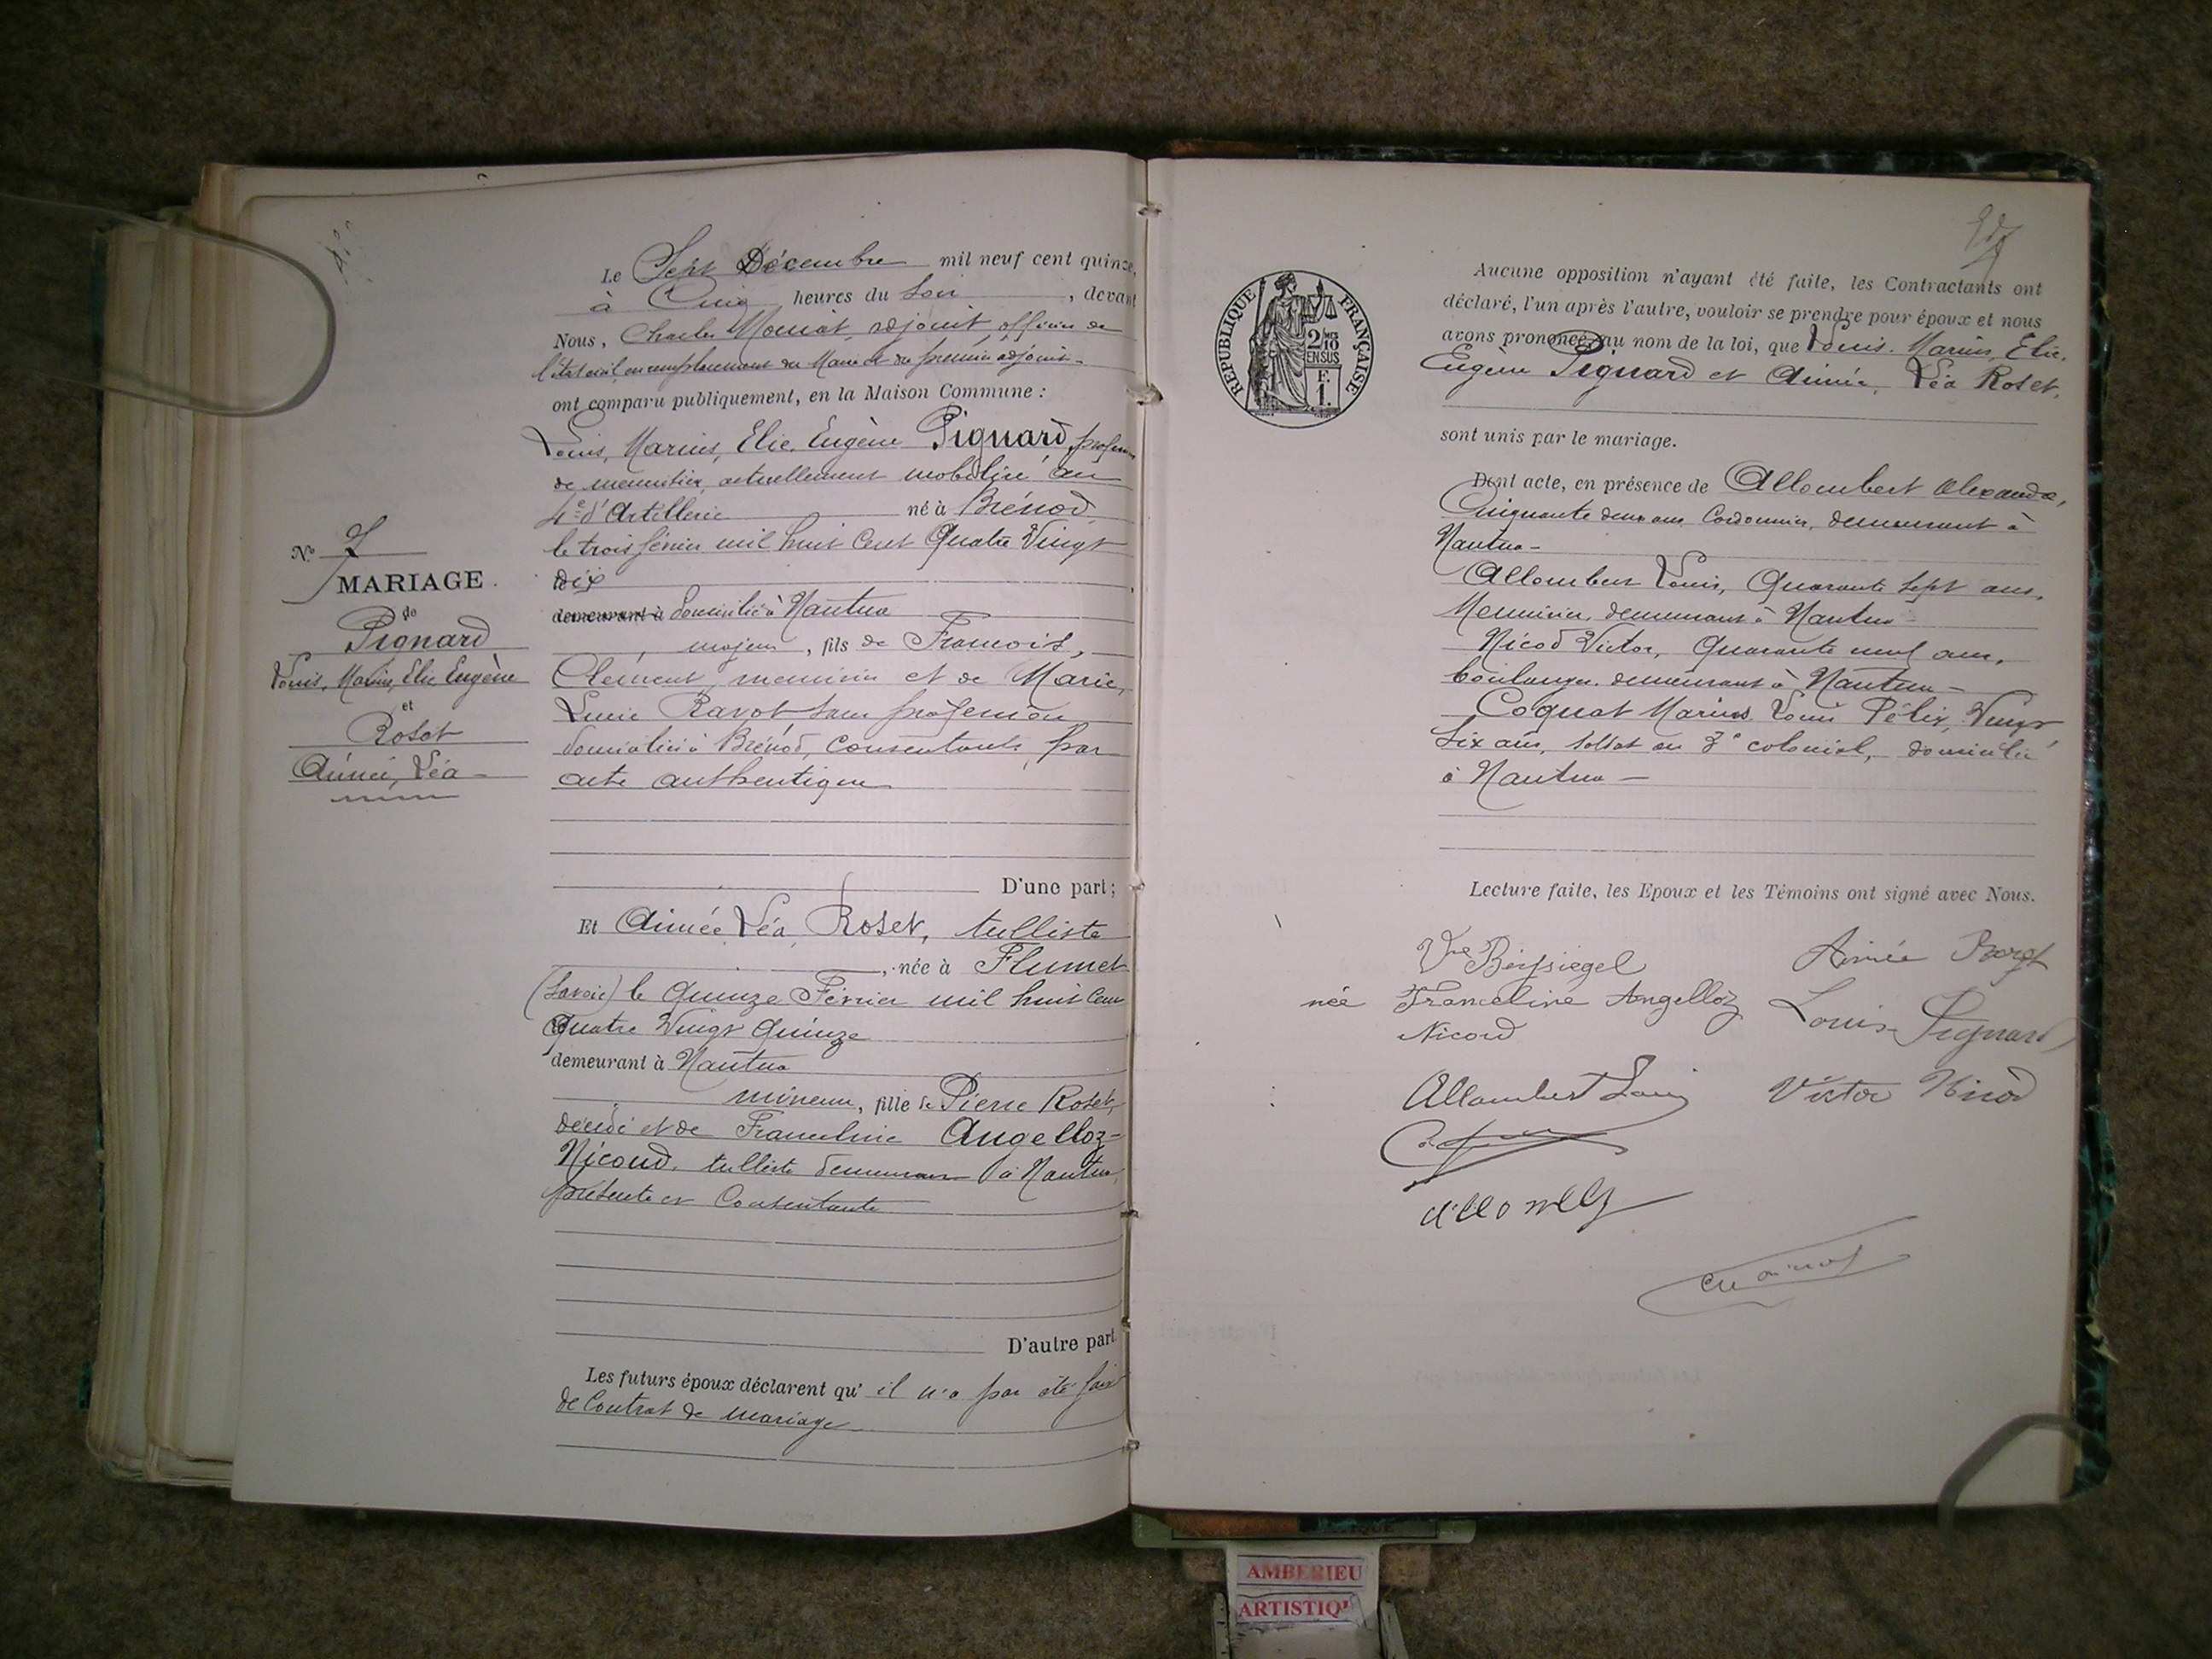 Le Sept Décembre mil neuf cent quinze,
à Cinq heures du Soir, devant
Nous, Charles Moniat, adjoint, officier de
l'état civil, en remplacement du Maire et du premier adjoint
ont comparu publiquement, en la Maison Commune :
Louis, Marius, Elie, Eugène Pignard, profession
de menuisier, actuellement mobilisé au
4e d'Artillerie né à Brénod
le trois février mil huit Cent Quatre Vingt
dix
demeurant à domicilié à Nantua
majeur, fils de François,
Clément, menuisier et de Marie,
Lucie Ravot sans profession
domiciliés à Brénod, consentants par
acte authentique
D'une part ;
Et Aimée, Léa, Roset, tulliste
, née à Flumet
(Savoie) le quinze Février mil huit Cent
Quatre Vingt Quinze
demeurant à Nantua
mineure, fille de Pierre Roset,
décédé et de Franceline Angelloz-
Nicoud, tulliste demeurant à Nantua,
présente et Consentante
D'autre part
Les futurs époux déclarent qu'il n'a pas été fait
de Contrat de mariage
No 7
MARIAGE.
de
Pignard
Louis, Marius, Elie, Eugène
et
Roset
Aimée, Léa
REPUBLIQUE FRANÇAISE
2/10
EN SUS
F.
1.
Aucune opposition n'ayant été faite, les Contractants ont
déclaré, l'un après l'autre, vouloir se prendre pour époux et nous
avons prononcé, au nom de la loi, que Louis, Marius, Elie,
Eugène Pignard et Aimée, Léa Roset,
sont unis par le mariage.
Dont acte, en présence de Allombert Alexandre,
Cinquante deux ans, Cordonnier, demeurant à
Nantua
Allombert Louis, Quarante Sept ans,
Menuisier, demeurant à Nantua
Nicod Victor, Quarante neuf ans,
boulanger, demeurant à Nantua
Coquat Marius Louis Félix, Vingt
Six ans, soldat au 3e colonial, domicilié
à Nantua
Lecture faite, les Epoux et les Témoins ont signé avec Nous.
Vve Beyssiegel Aimée Roset
née Franceline Angelloz Louis Pignard
Nicoud
Allombert Louis Victor Nicod
AMBERIEU
ARTISTIQ